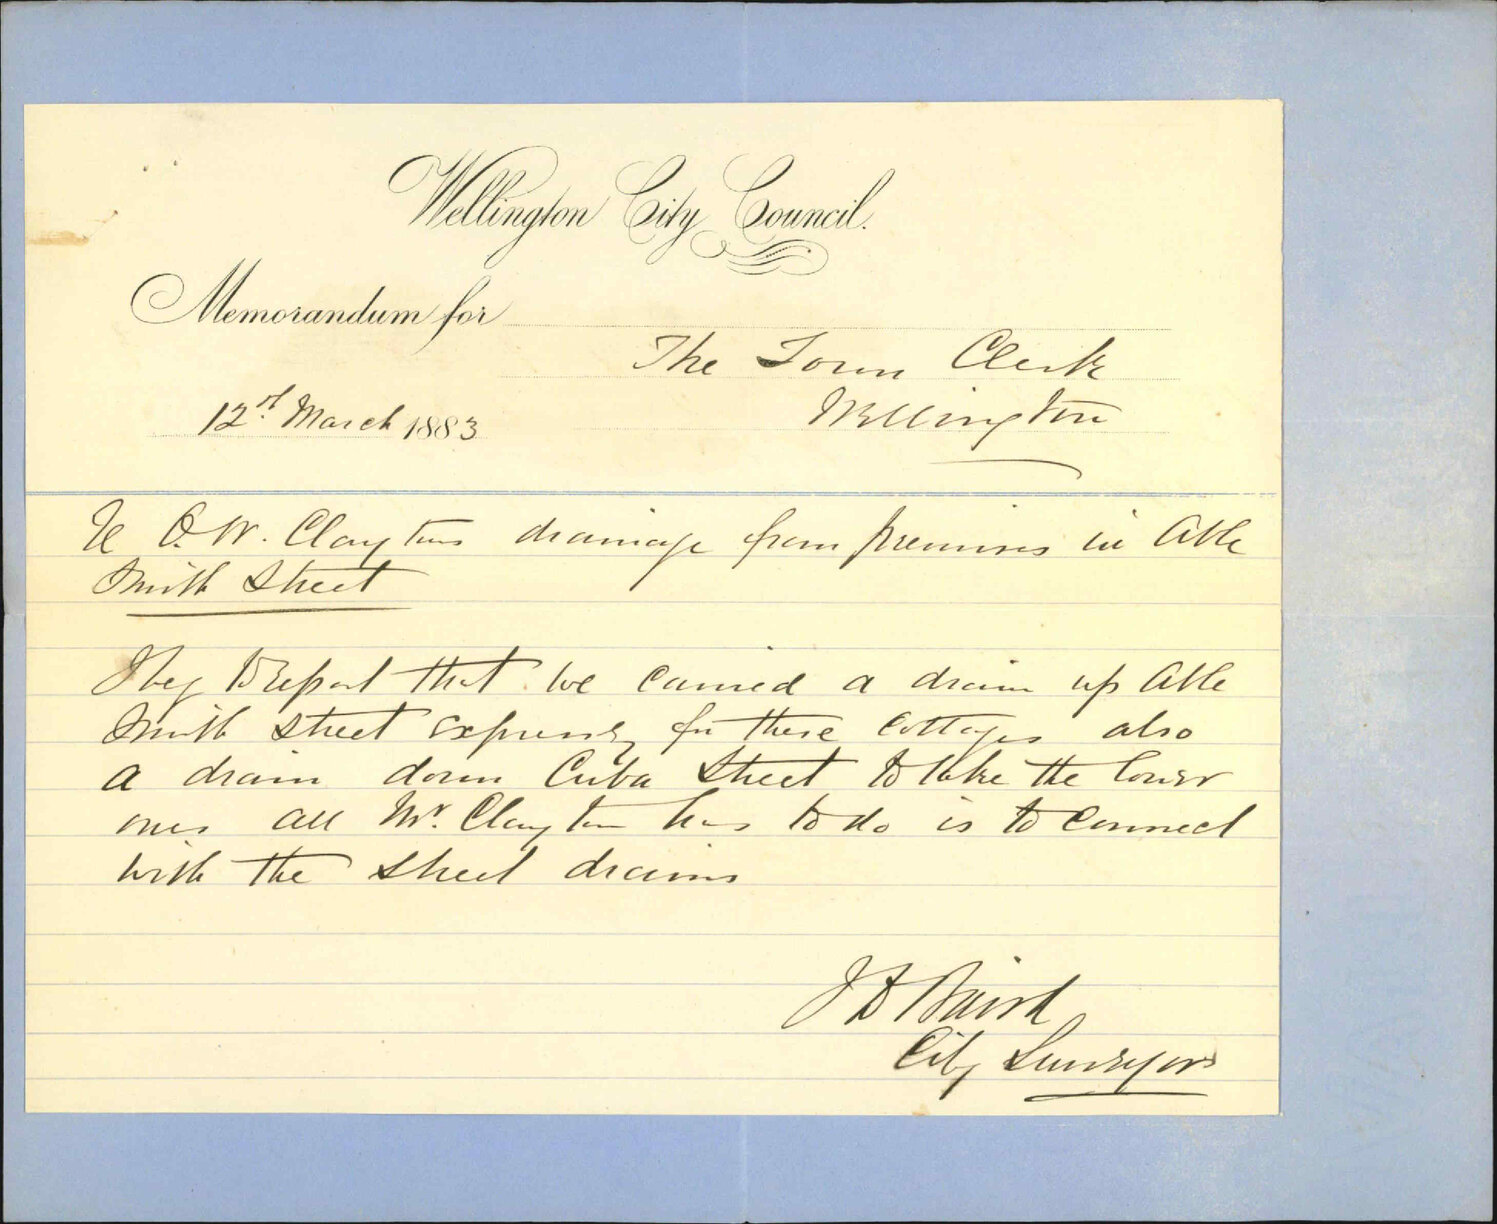 Wellington City Council.
Memorandum for
The Town Clerk
12th March 1883
Wellington
Re C. W. Claytons drainage from premises in Able
Smith Street
I beg to report that we carried a drain up Able
Smith Street expressly for these cottages also
a drain down Cuba Street to take the lower
ones all Mr. Clayton has to do is to connect
with the street drains
J D Baird
City Surveyor